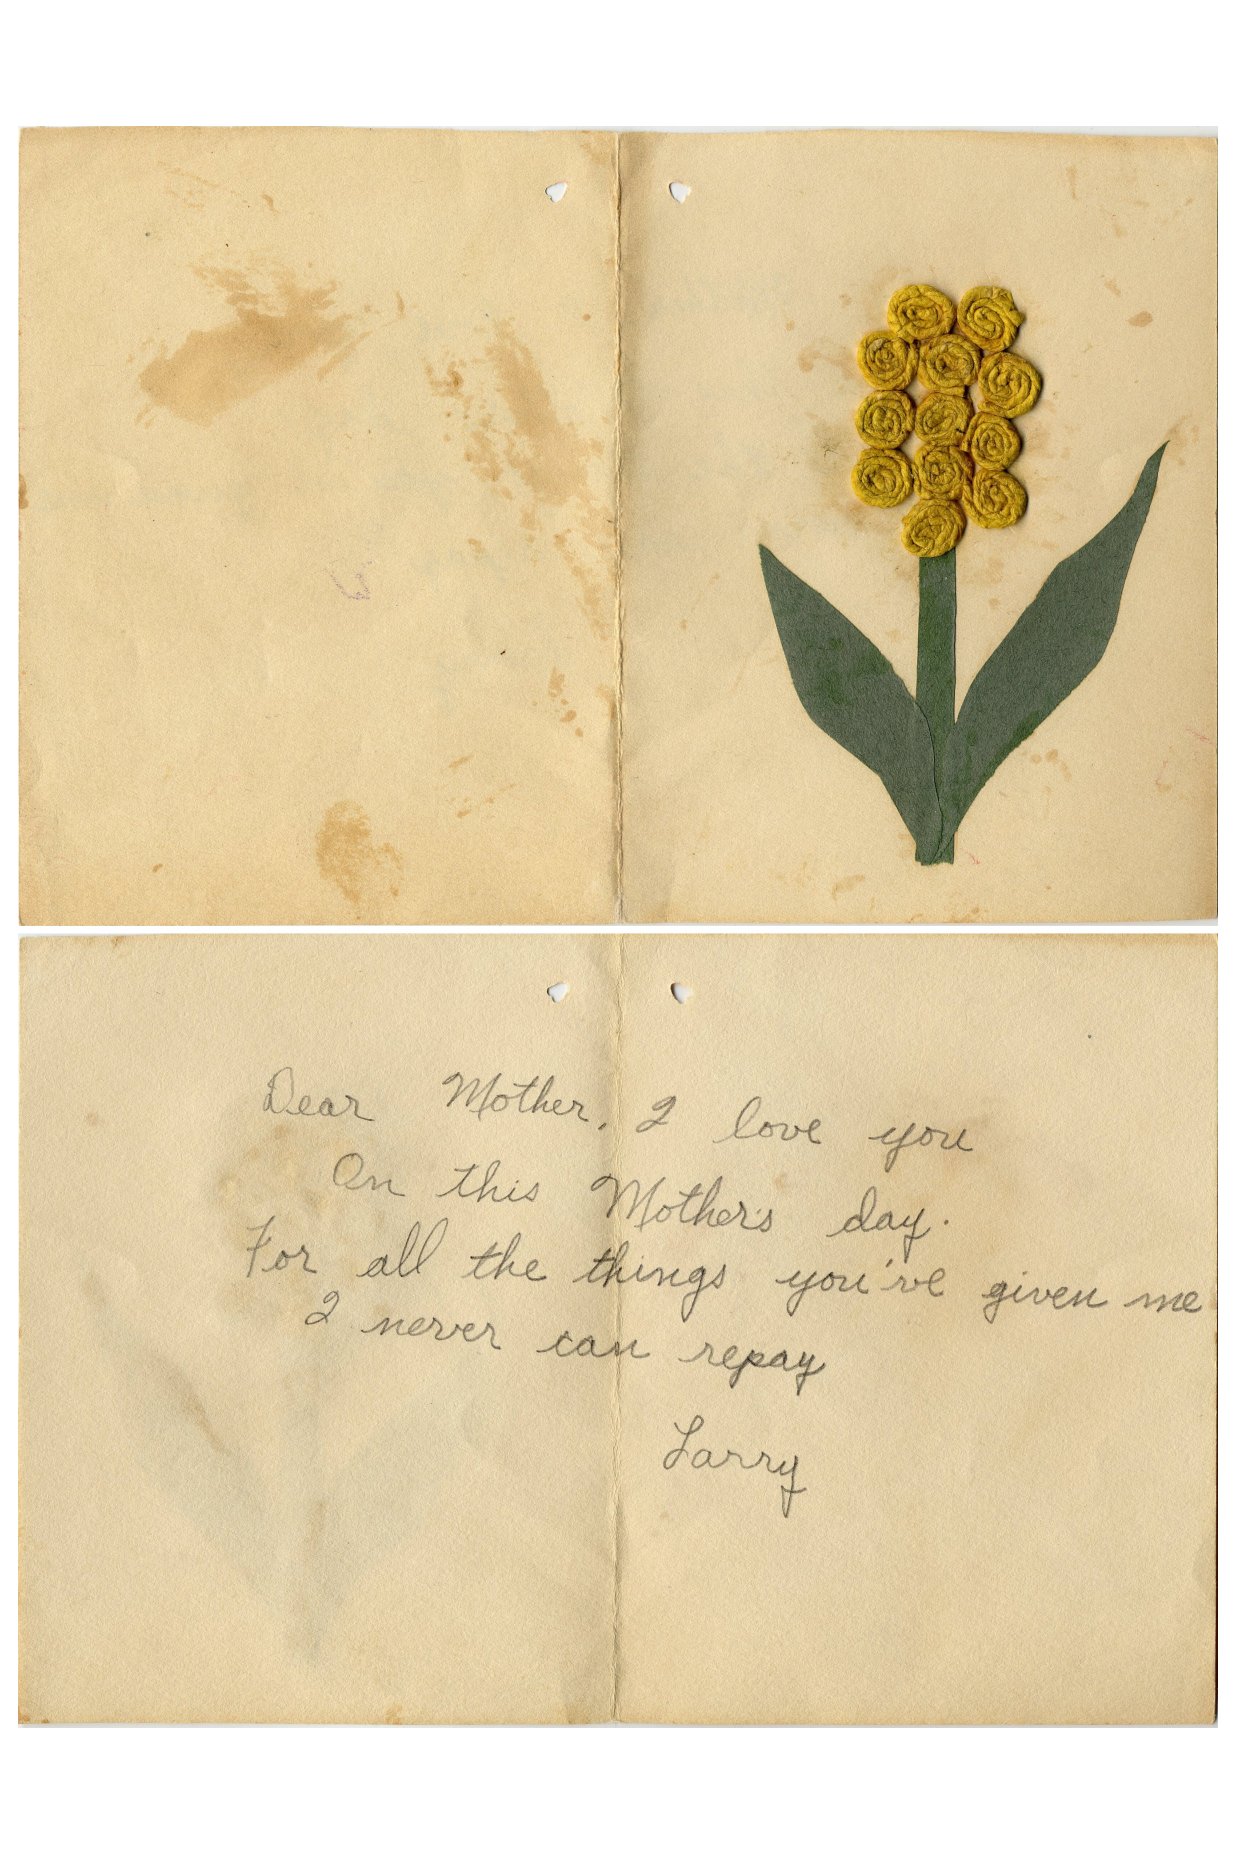 Dear Mother, I love you
On this Mother's day.
For all the things you've given me
I never can repay
Larry